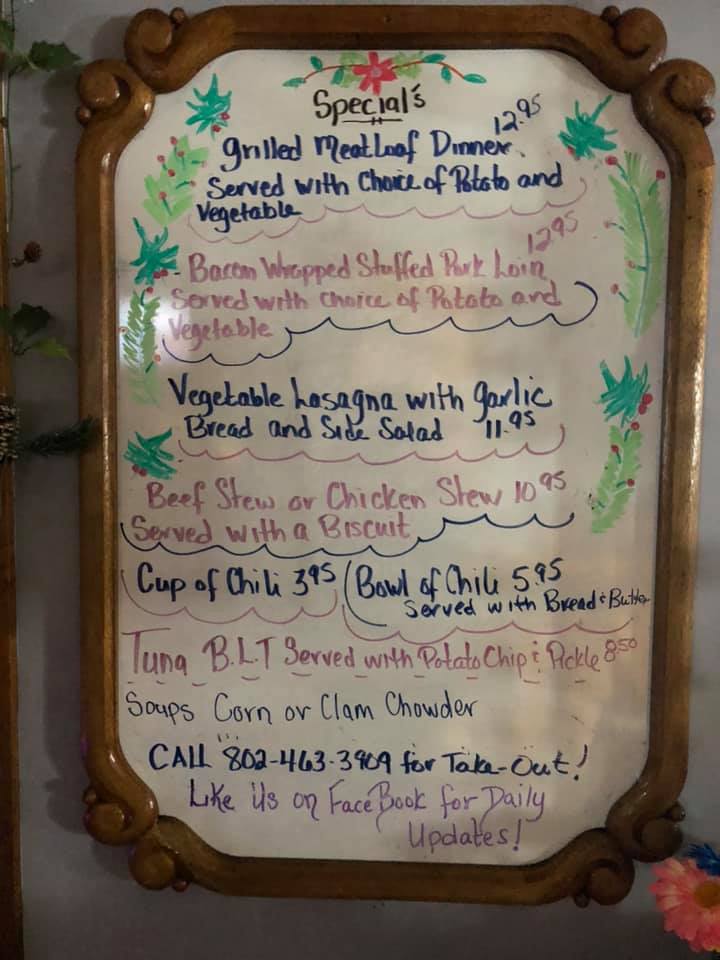 Special's
12.95
Grilled MeatLoaf Dinner
Served with Choice of Potato and
Vegetable
12.95
- Bacon Wrapped Stuffed Pork Loin
Served with choice of Potato and
Vegetable
Vegetable Lasagna with garlic
Bread and Side Salad 11.95
Beef Stew or Chicken Stew 10 95
Served with a Biscuit
Cup of Chili 3.95 Bowl of Chili 5.95
Served with Bread & Butter
Tuna B.L.T Served with Potato Chip & Pickle 8.50
Soups Corn or Clam Chowder
CALL 802-463-3909 for Take-Out!
Like Us on FaceBook for Daily
Updates!